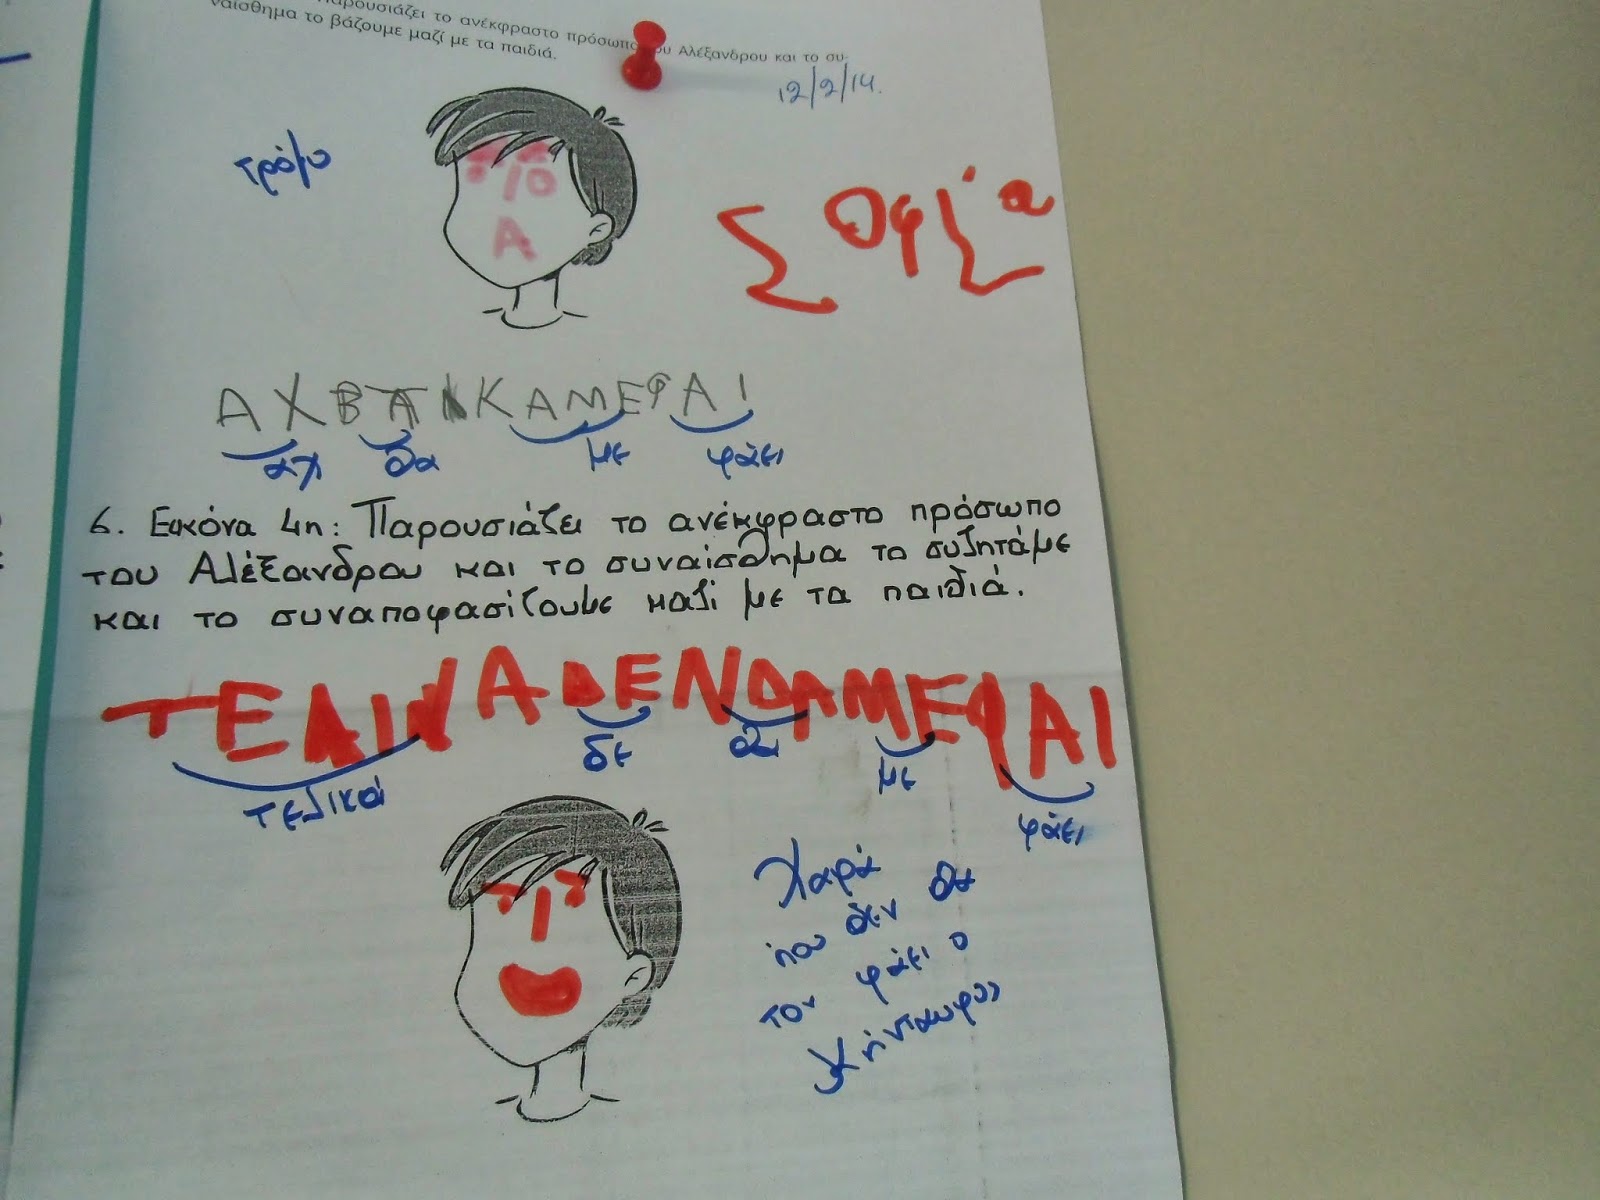 παρουσιάζει το ανέκφραστο πρόσωπο του Αλέξανδρου και το συ-
ναίσθημα το βάζουμε μαζί με τα παιδιά.
12/2/14.
τρόμο
Σοφία
ΑΧΒΑ ΚΑΜΕΦΑΙ
αχ θα με φάει
6. Εικόνα 4η: Παρουσιάζει το ανέκφραστο πρόσωπο
του Αλέξανδρου και το συναίσθημα το συζητάμε
και το συναποφασίζουμε μαζί με τα παιδιά.
ΑΔΕΝΘΑΜΕΦΑΙ
τελικά δε θα με φάει
Χαρά
που δεν θα
τον φάει ο
Κένταυρος